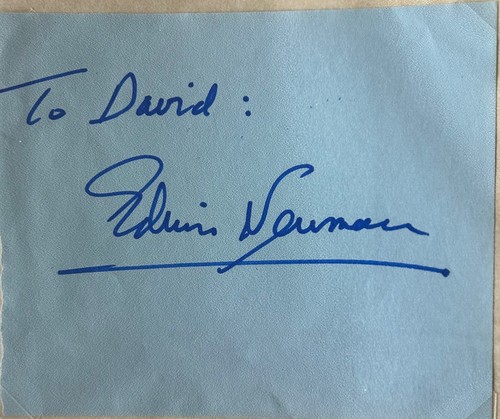 To David:
Edwin Newman